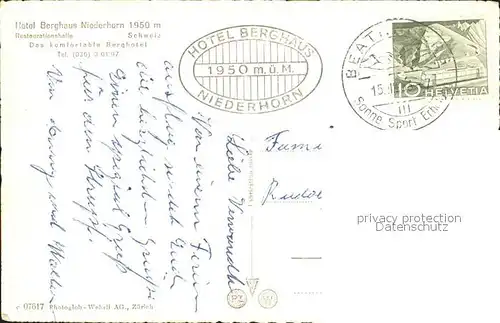 Hotel Berghaus Niederhorn 1950 m
Restaurationshalle Schweiz
Das komfortable Berghotel
Tel. (036) 3 01 97
HOTEL BERGHAUS
1950 m.ü.M.
NIEDERHORN
BEAT
15.
Sonne Sport
10 HELVETIA
Liebe Verwandte
Von einem Ferien
ausflug sendet Euch
die herzlichsten Grüsse
Einen spezial Gruss
für den
Von und Walter
Fami
Rudol
privacy protection
Datenschutz
07617 Photoglob-Wehrli AG., Zürich
PZ
W